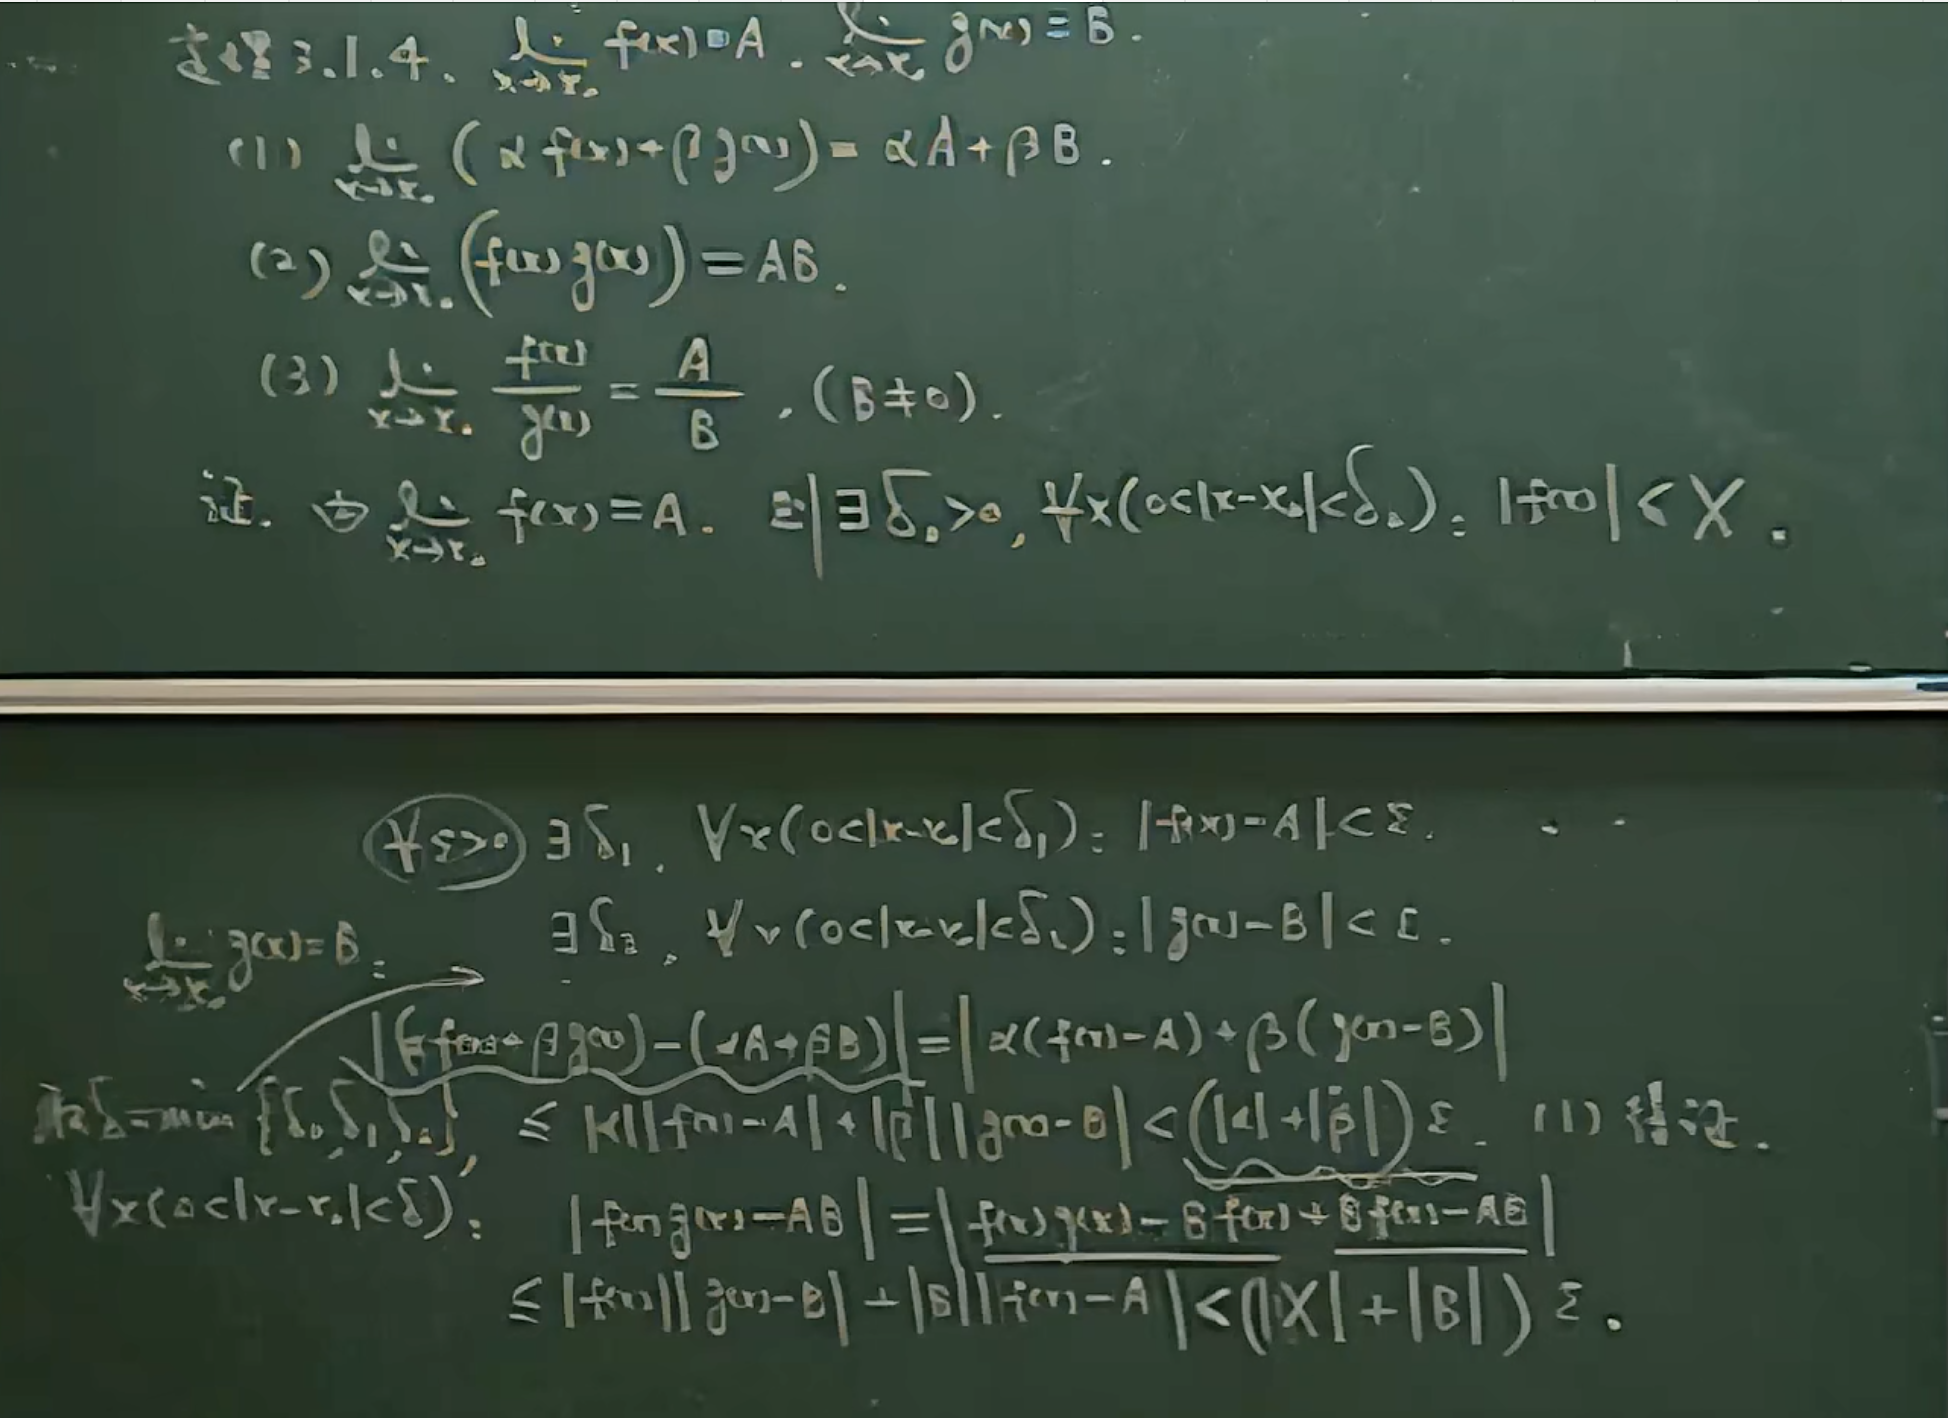 定理3.1.4. lim_{x→x₀} f(x)=A. lim_{x→x₀} g(x)=B.
(1) lim_{x→x₀} (αf(x)+βg(x))=αA+βB.
(2) lim_{x→x₀} (f(x)g(x))=AB.
(3) lim_{x→x₀} f(x)/g(x) = A/B, (B≠0).
证. 由 lim_{x→x₀} f(x)=A. 已∃δ₀>0, ∀x(0<|x-x₀|<δ₀): |f(x)|<X.
∀ε>0 ∃δ₁, ∀x(0<|x-x₀|<δ₁): |f(x)-A|<ε.
lim_{x→x₀} g(x)=B: ∃δ₂, ∀x(0<|x-x₀|<δ₂): |g(x)-B|<ε.
|(αf(x)+βg(x))-(αA+βB)|=|α(f(x)-A)+β(g(x)-B)|
取δ=min{δ₀,δ₁,δ₂}, ≤|α||f(x)-A|+|β||g(x)-B|<(|α|+|β|)ε. (1)得证.
∀x(0<|x-x₀|<δ): |f(x)g(x)-AB|=|f(x)g(x)-Bf(x)+Bf(x)-AB|
≤|f(x)||g(x)-B|+|B||f(x)-A|<(|X|+|B|)ε.